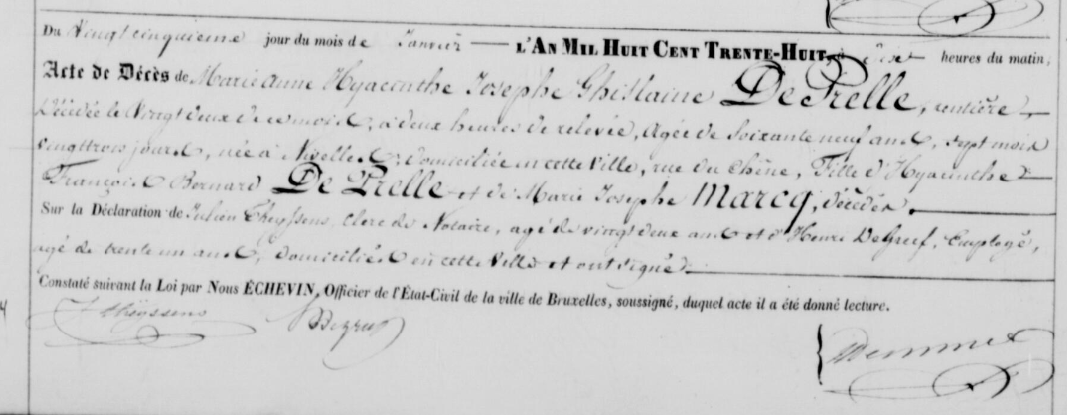 Du Vingt cinquieme jour du mois de Janvier — L'AN MIL HUIT CENT TRENTE-HUIT, à dix heures du matin,
Acte de Décès de Marie Anne Hyacinthe Josephe Ghislaine De Prelle, rentière,
décédée le Vingt deux de ce mois, à deux heures de relevée, âgée de soixante neuf ans, sept mois
vingt trois jours, née à Nivelles, domiciliée en cette Ville, rue du Chêne, Fille d'Hyacinthe
François Bernard De Prelle et de Marie Josephe Marcq, décédés.
Sur la Déclaration de Julien Theyssens, Clerc de Notaire, agé de vingt deux ans et d'Henri DeGreef, Employé,
agé de trente un ans, domiciliés en cette Ville et ont signé
Constaté suivant la Loi par Nous ÉCHEVIN, Officier de l'État-Civil de la ville de Bruxelles, soussigné, duquel acte il a été donné lecture.
J Theyssens